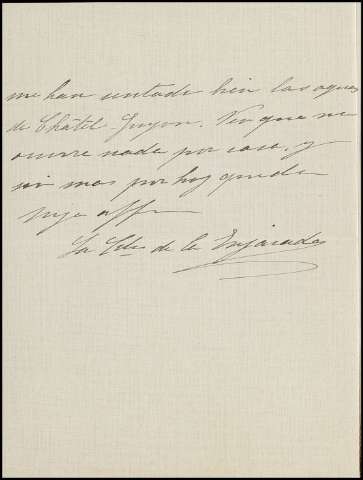 me han untado bien las aguas
de Châtel Guyon. Veo que no
ocurre nada por casa, y
sin mas por hoy queda
suya affma
La Ctsa de la